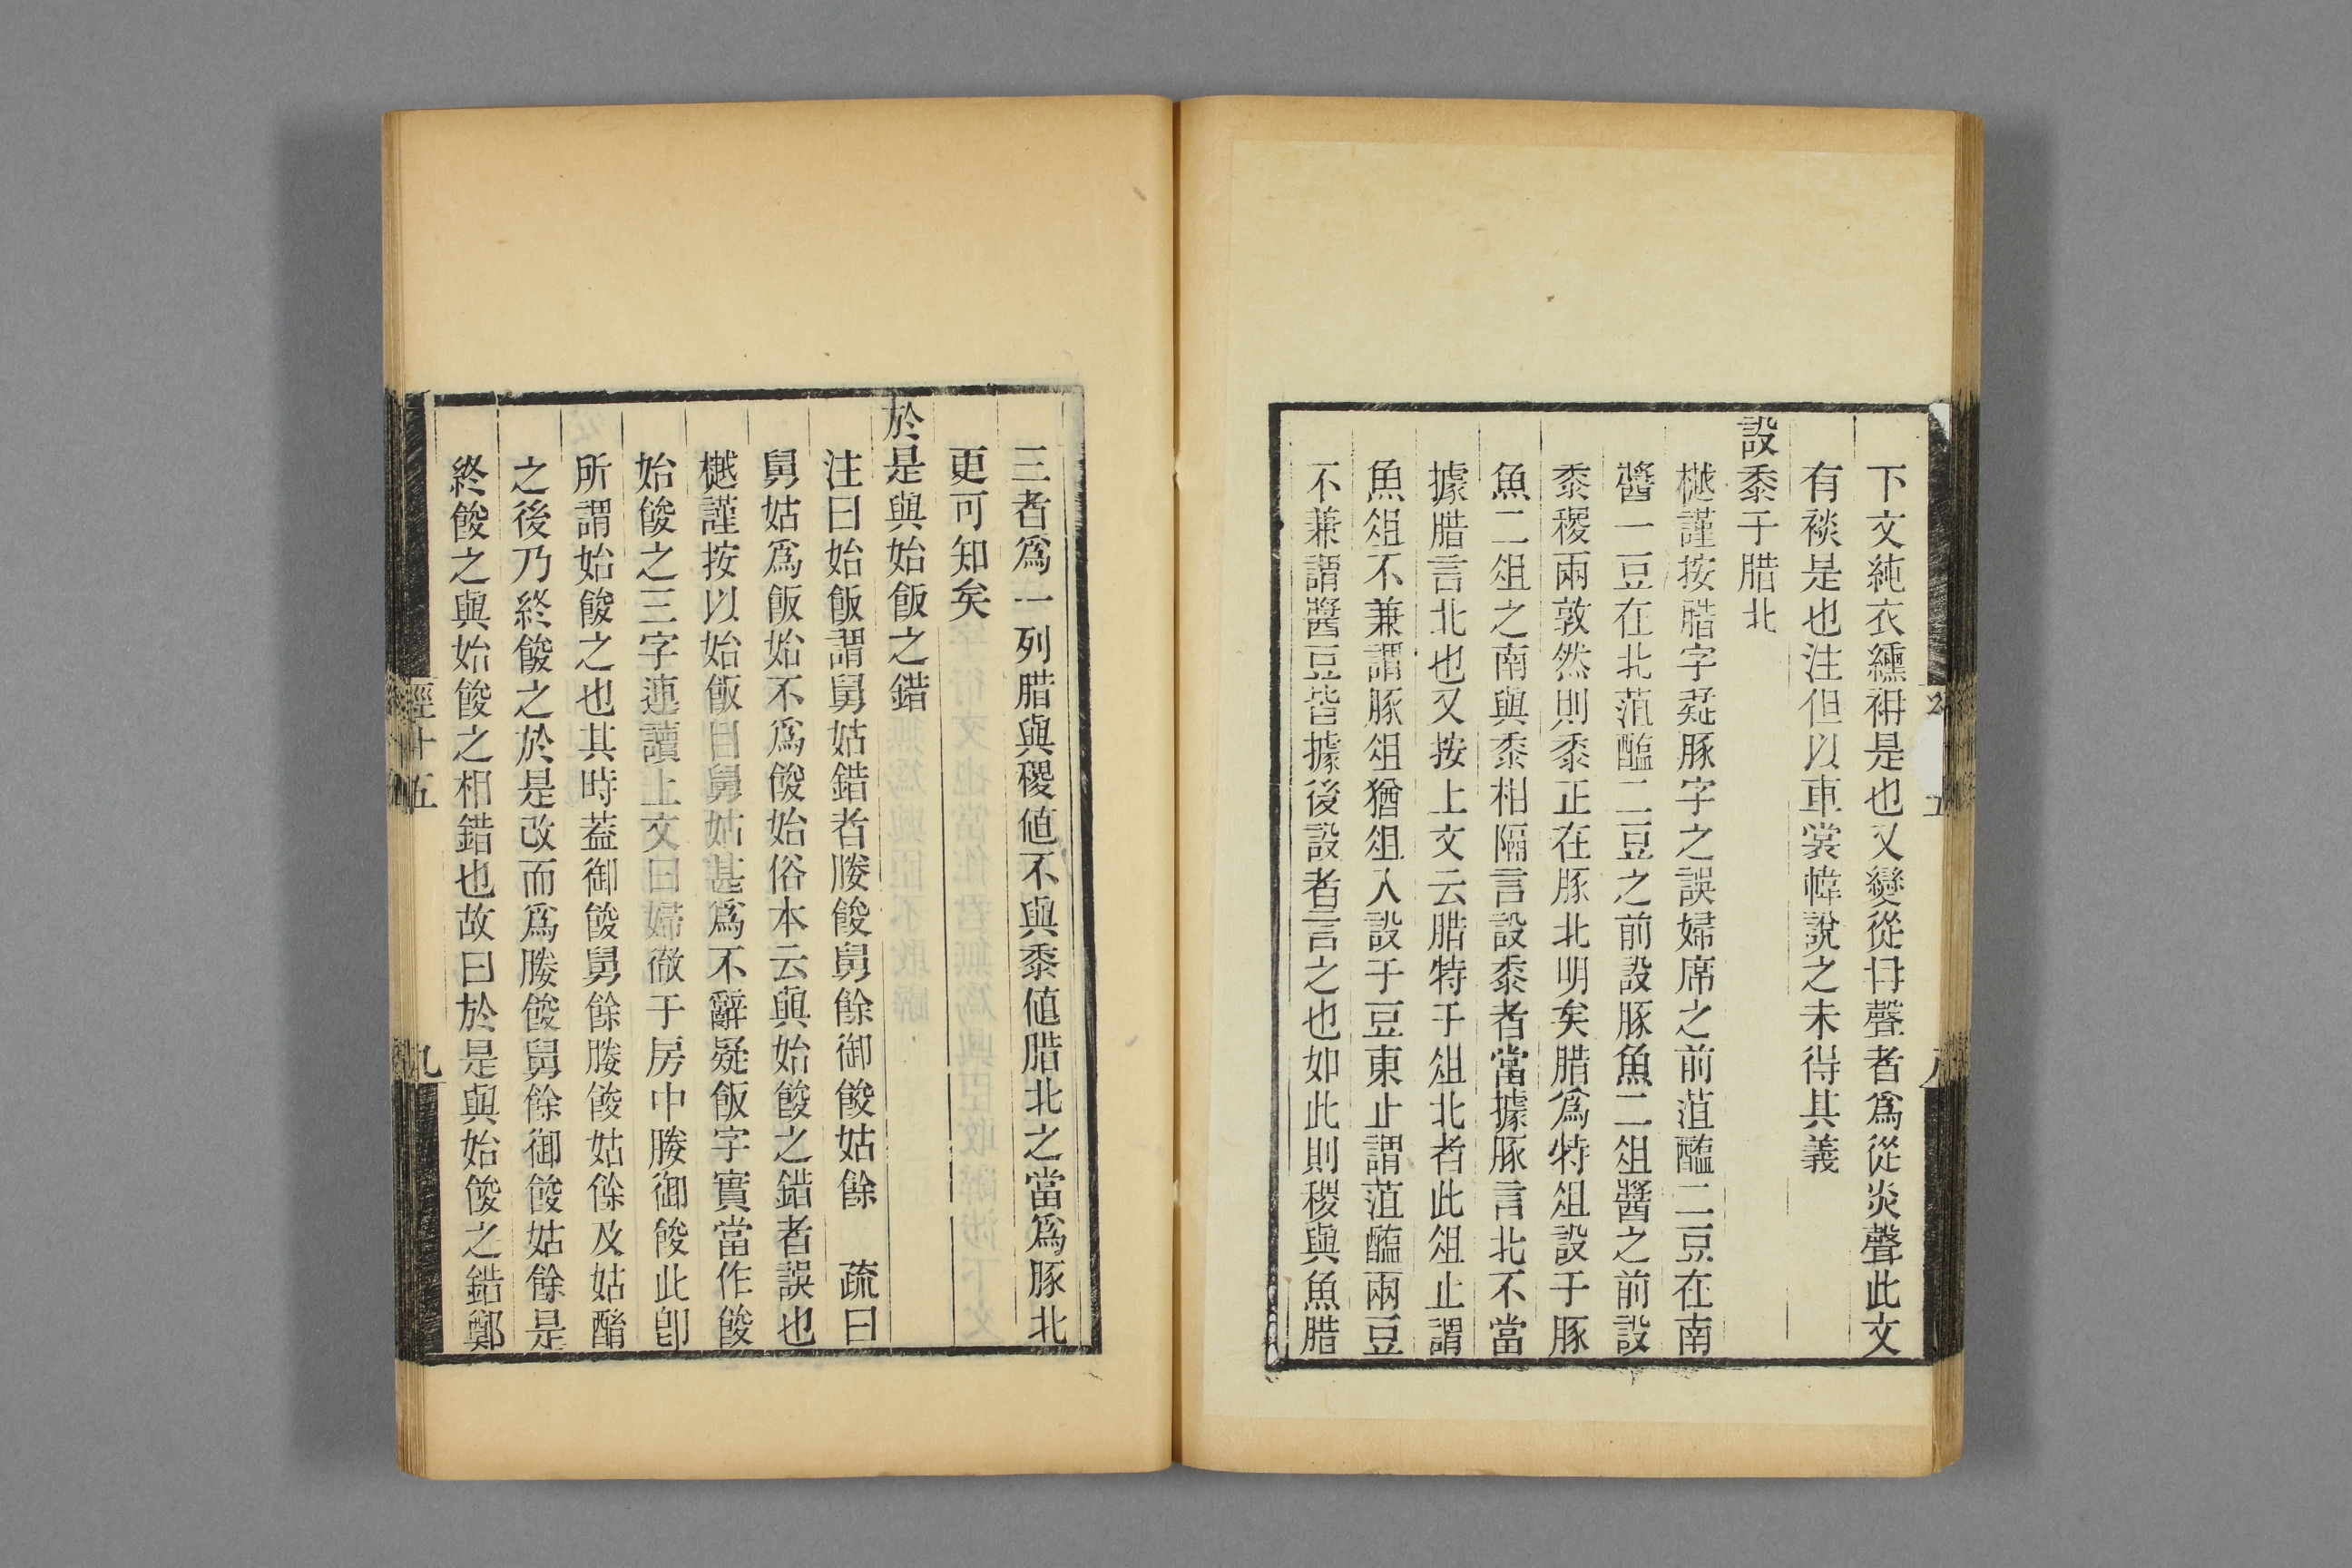 下文純衣纁袡是也又變從冄聲者爲從炎聲此文
有裧是也注但以車裳幃說之未得其義
設黍于腊北
樾謹按腊字疑豚字之誤婦席之前菹醢二豆在南
醬一豆在北菹醢二豆之前設豚魚二俎醬之前設
黍稷兩敦然則黍正在豚北明矣腊爲特俎設于豚
魚二俎之南與黍相隔言設黍者當據豚言北不當
據腊言北也又按上文云腊特于俎北者此俎止謂
魚俎不兼謂豚俎猶俎入設于豆東止謂菹醢兩豆
不兼謂醬豆皆據後設者言之也如此則稷與魚腊
三者爲一列腊與稷値不與黍値腊北之當爲豚北
更可知矣
於是與始飯之錯
注曰始飯謂舅姑錯者媵餕舅餘御餕姑餘　疏曰
舅姑爲飯始不爲餕始俗本云與始餕之錯者誤也
樾謹按以始飯目舅姑甚爲不辭疑飯字實當作餕
始餕之三字連讀上文曰婦徹于房中媵御餕此卽
所謂始餕之也其時蓋御餕舅餘媵餕姑餘及姑酳
之後乃終餕之於是改而爲媵餕舅餘御餕姑餘是
終餕之與始餕之相錯也故曰於是與始餕之錯鄭
經十五
九